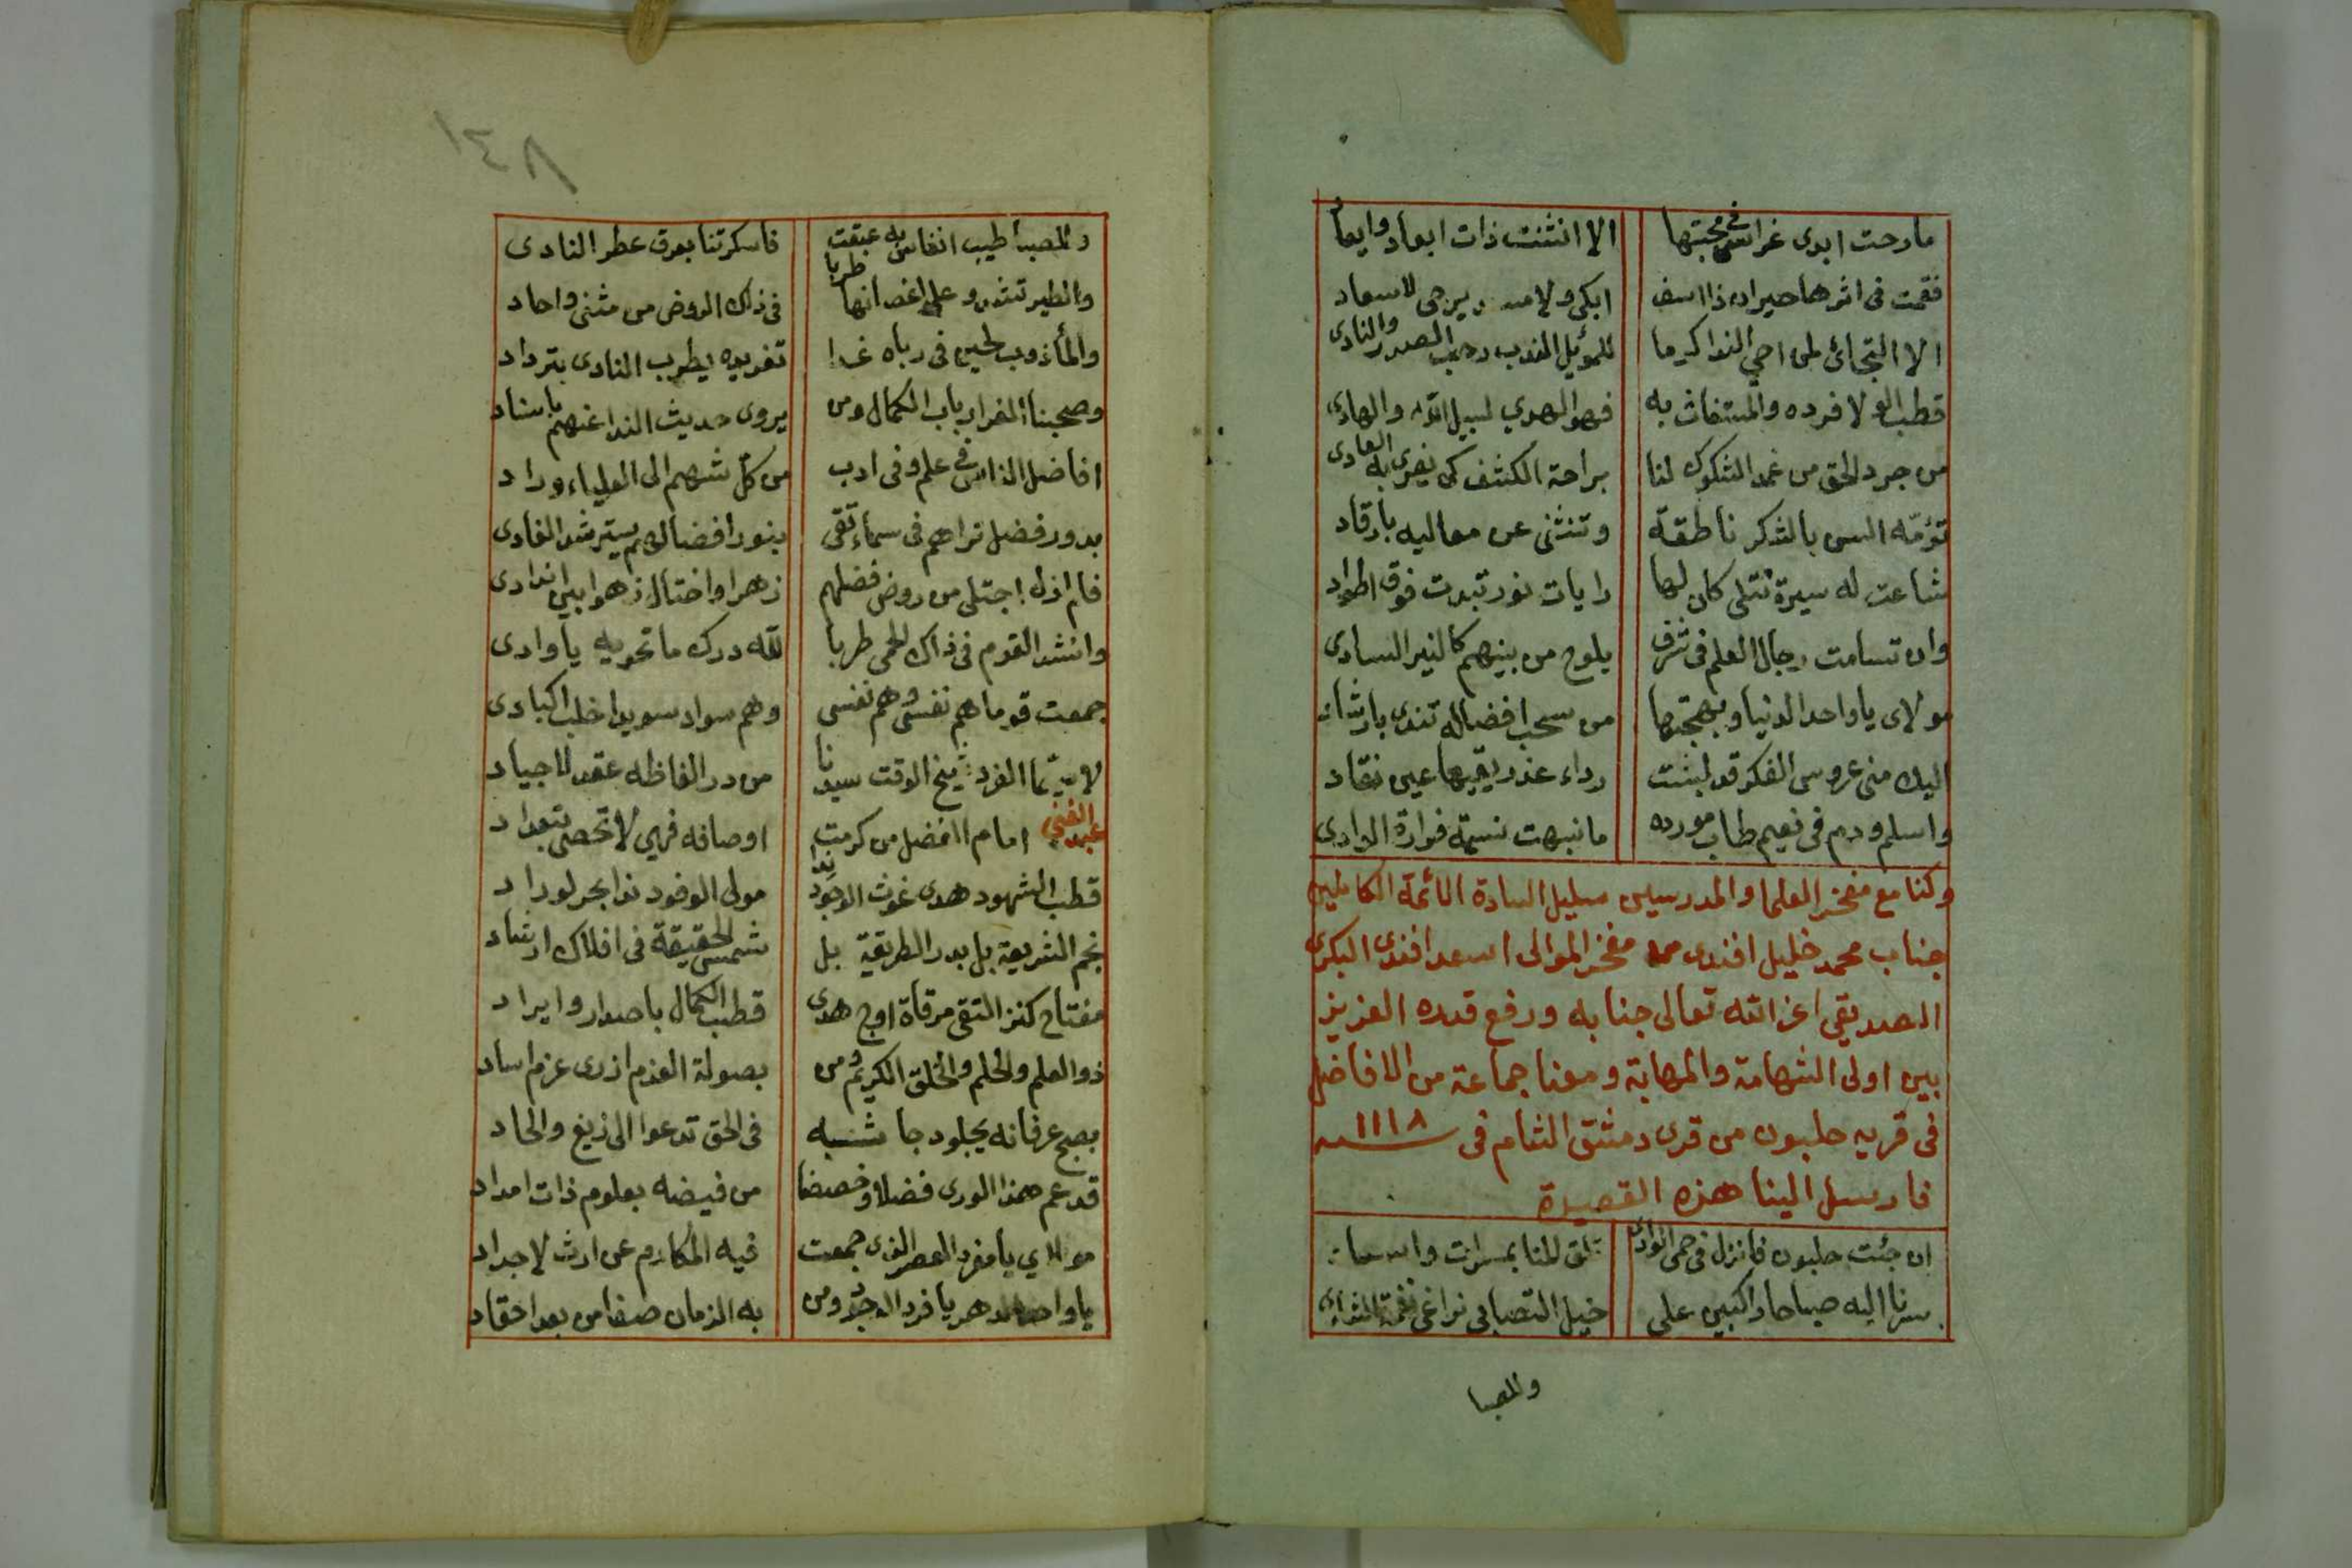 ما رحت ابدى غرامي في محبتها الا انثنت ذات ابعاد وايعاد
فقمت في اثرها حيران ذا اسف ابكي ولا يرجى لاسعاد
الا التجائي لمن احيي الندا كرما للموئل الندب رحب الصدر والنادى
قطب الولا فرده والمستغاث به فهو المهدي لسبيل الله والهادى
من جرد الحق من غمد الشكوك لنا براحة الكشف كي نفرى به العادى
تؤمه السن بالشكر ناطقة وتنثنى عن معاليه بارقاد
شاعت له سيرة تتلى كان لها رايات نور تبدت فوق اطواد
وان تسامت رجال العلم في شرف يلوح من بينهم كالنير السادى
مولاى يا واحد الدنيا وبهجتها من سحب افضاله تندى بارشاد
اليك منى عروس الفكر قد لبثت رداء عذر يقيها عين نقاد
واسلم ودم في نعيم طاب مورده ما نبهت نسمة فوارة الوادى
وكنا مع مفخر العلما والمدرسين سليل السادة الائمة الكاملين
جناب محمد خليل افندى مفخر الموالى اسعد افندى البكرى
الصديقي اعز الله تعالى جنابه ورفع قدره العزيز
بين اولى الشهامة والمهابة ومعنا جماعة من الافاضل
في قرية حلبون من قرى دمشق الشام في سنة ١١١٨
فارسل الينا هذه القصيدة
ان جئت حلبون فانزل في حمى الوادى تلق المنا بمسرات واسعاد
سرنا اليه صباحا راكبين على خيل التصابي نراعي نغمة الشادى
والصبا
٨٤١
وللصبا طيب انفاس به عبقت فاسكرتنا بعرف عطر النادى
والطير تشدو على اغصانها طربا في ذاك الروض من مثنى واحاد
والما يذوب لجين في رباه غدا تغريده يطرب النادى بترداد
وصحبنا الغر ارباب الكمال ومن يروى حديث الندا عنهم باسناد
افاضل الناس في علم وفي ادب من كل شهم الى العلياء وراد
بدور فضل تراهم في سماء تقى بنور افضالهم يسترشد الغادى
فلم ازل اجتلى من روض فضلهم زهرا واختال زهوا بين اندادى
وانشد القوم في ذاك الحمى طربا لله درك ما تحويه يا وادى
جمعت قوما هم نفسى وهم نفسى وهم سواد سويدا خلب اكبادى
لا سيما الفرد شيخ الوقت سيدنا من در الفاظه عقد لاجياد
عبد الغني امام الفضل من كرمت اوصافه فهي لا تحصى بتعداد
قطب الشهود هدى غوث الوجود ندا مولى الوفود ندا بحر لوراد
نجم الشريعة بل بدر الطريقة بل شمس الحقيقة في افلاك ارشاد
مفتاح كنز التقى مرقاة اوج هدى قطب الكمال باصدار وايراد
ذو العلم والحلم والخلق الكريم ومن بصولة العزم ازرى عزم اساد
بصبح عرفانه يجلو دجا شبه في الحق تدعوا الى زيغ والحاد
قد عم هذا الورى فضلا وخصصنا من فيضه بعلوم ذات امداد
مولاي يا مفرد العصر الذى جمعت فيه المكارم عن ارث لاجداد
يا واحد الدهر يا فرد الوجود ومن به الزمان صفا من بعد احقاد